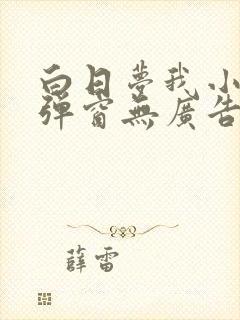 白日夢我小
彈窗無廣告
薛雷